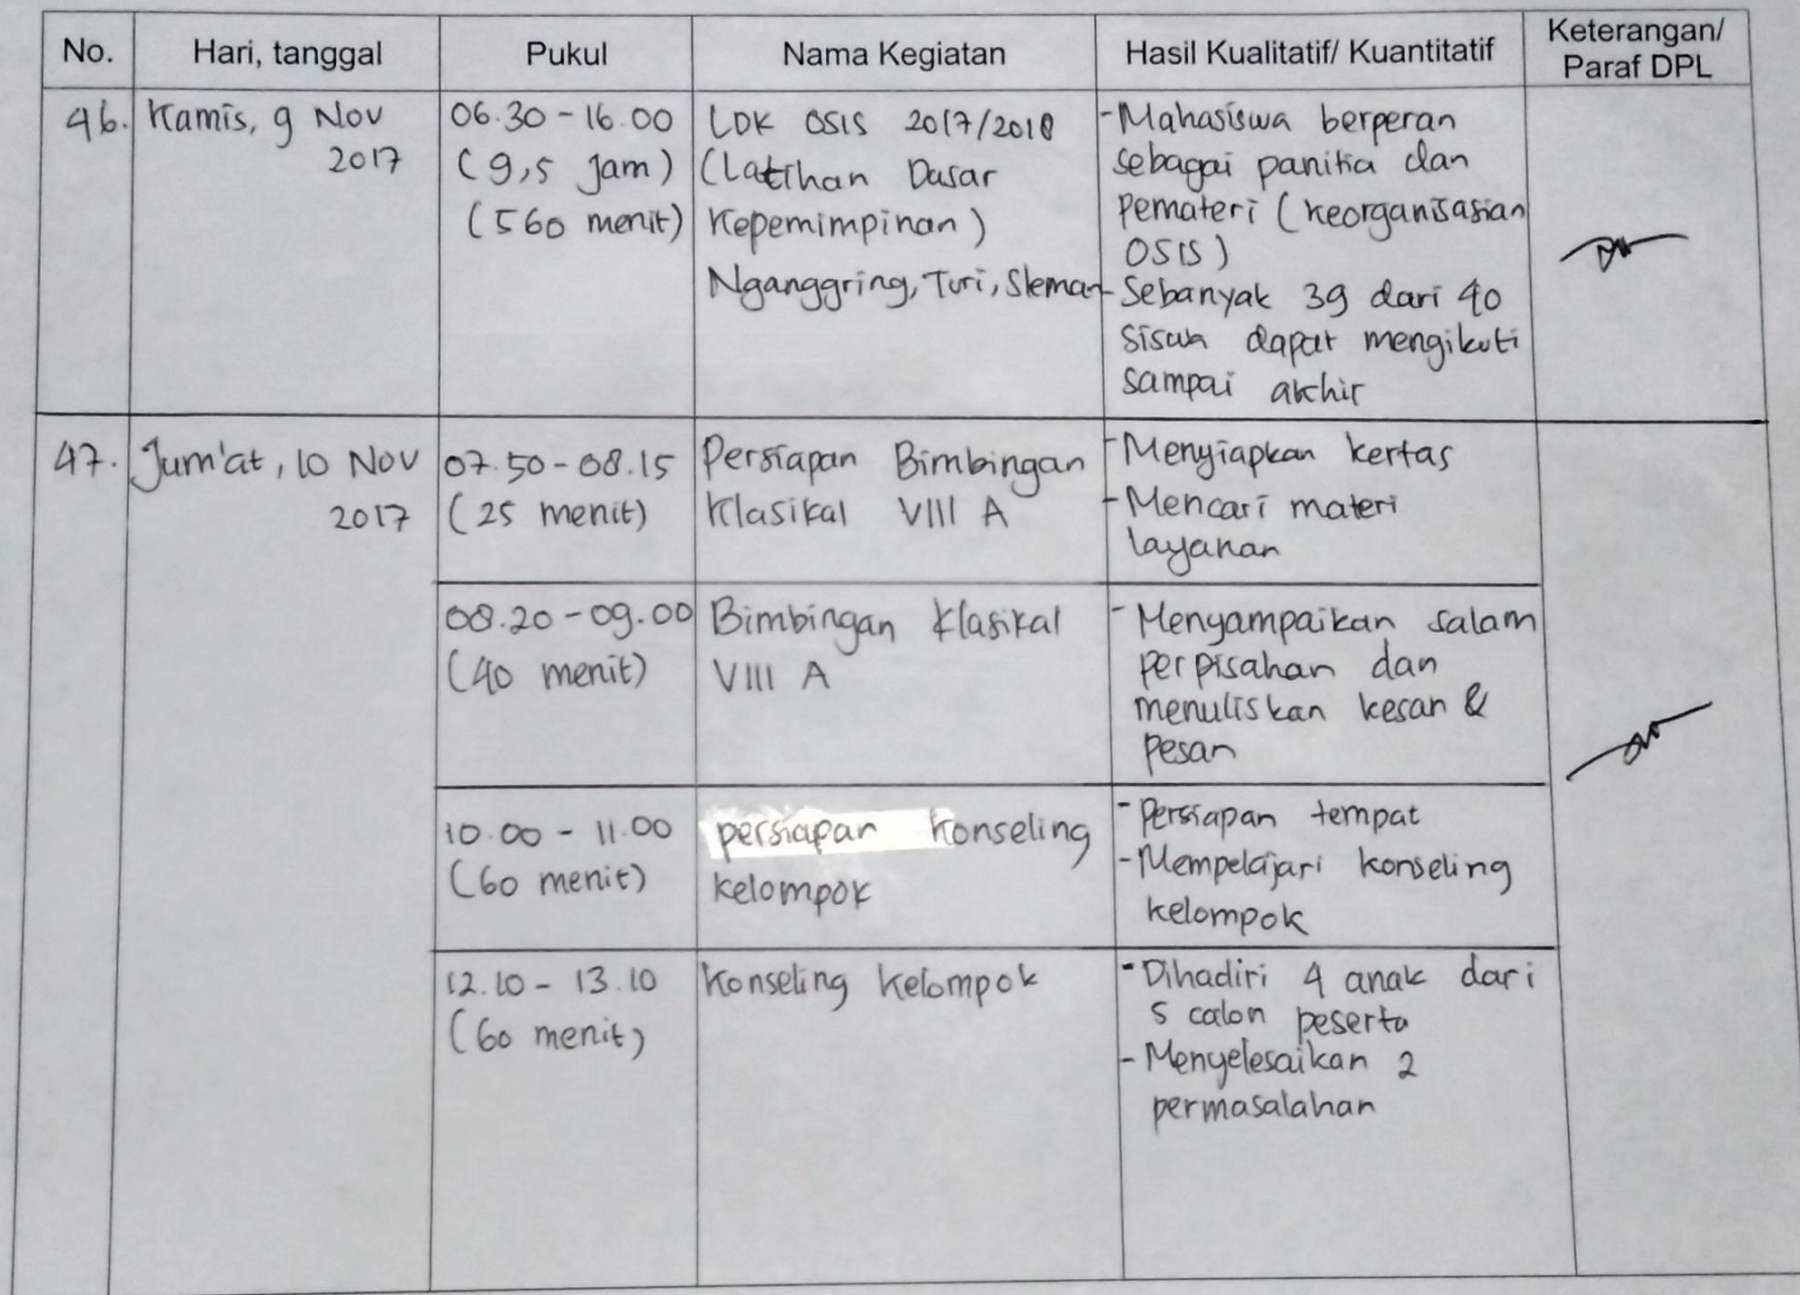 No. Hari, tanggal Pukul Nama Kegiatan Hasil Kualitatif/ Kuantitatif Keterangan/
Paraf DPL
46. Kamis, 9 Nov
2017
06.30 - 16.00
(9,5 jam)
(560 menit)
LDK OSIS 2017/2018
(Latihan Dasar
Kepemimpinan)
Nganggring, Turi, Sleman
- Mahasiswa berperan
sebagai panitia dan
pemateri (keorganisasian
OSIS)
- Sebanyak 39 dari 40
siswa dapat mengikuti
sampai akhir
47. Jum'at, 10 Nov
2017
07.50 - 08.15
(25 menit)
Persiapan Bimbingan
Klasikal VIII A
- Menyiapkan kertas
- Mencari materi
layanan
08.20 - 09.00
(40 menit)
Bimbingan Klasikal
VIII A
- Menyampaikan salam
perpisahan dan
menuliskan kesan &
pesan
10.00 - 11.00
(60 menit)
persiapan Konseling
kelompok
- Persiapan tempat
- Mempelajari konseling
kelompok
12.10 - 13.10
(60 menit)
Konseling Kelompok
- Dihadiri 4 anak dari
5 calon peserta
- Menyelesaikan 2
permasalahan